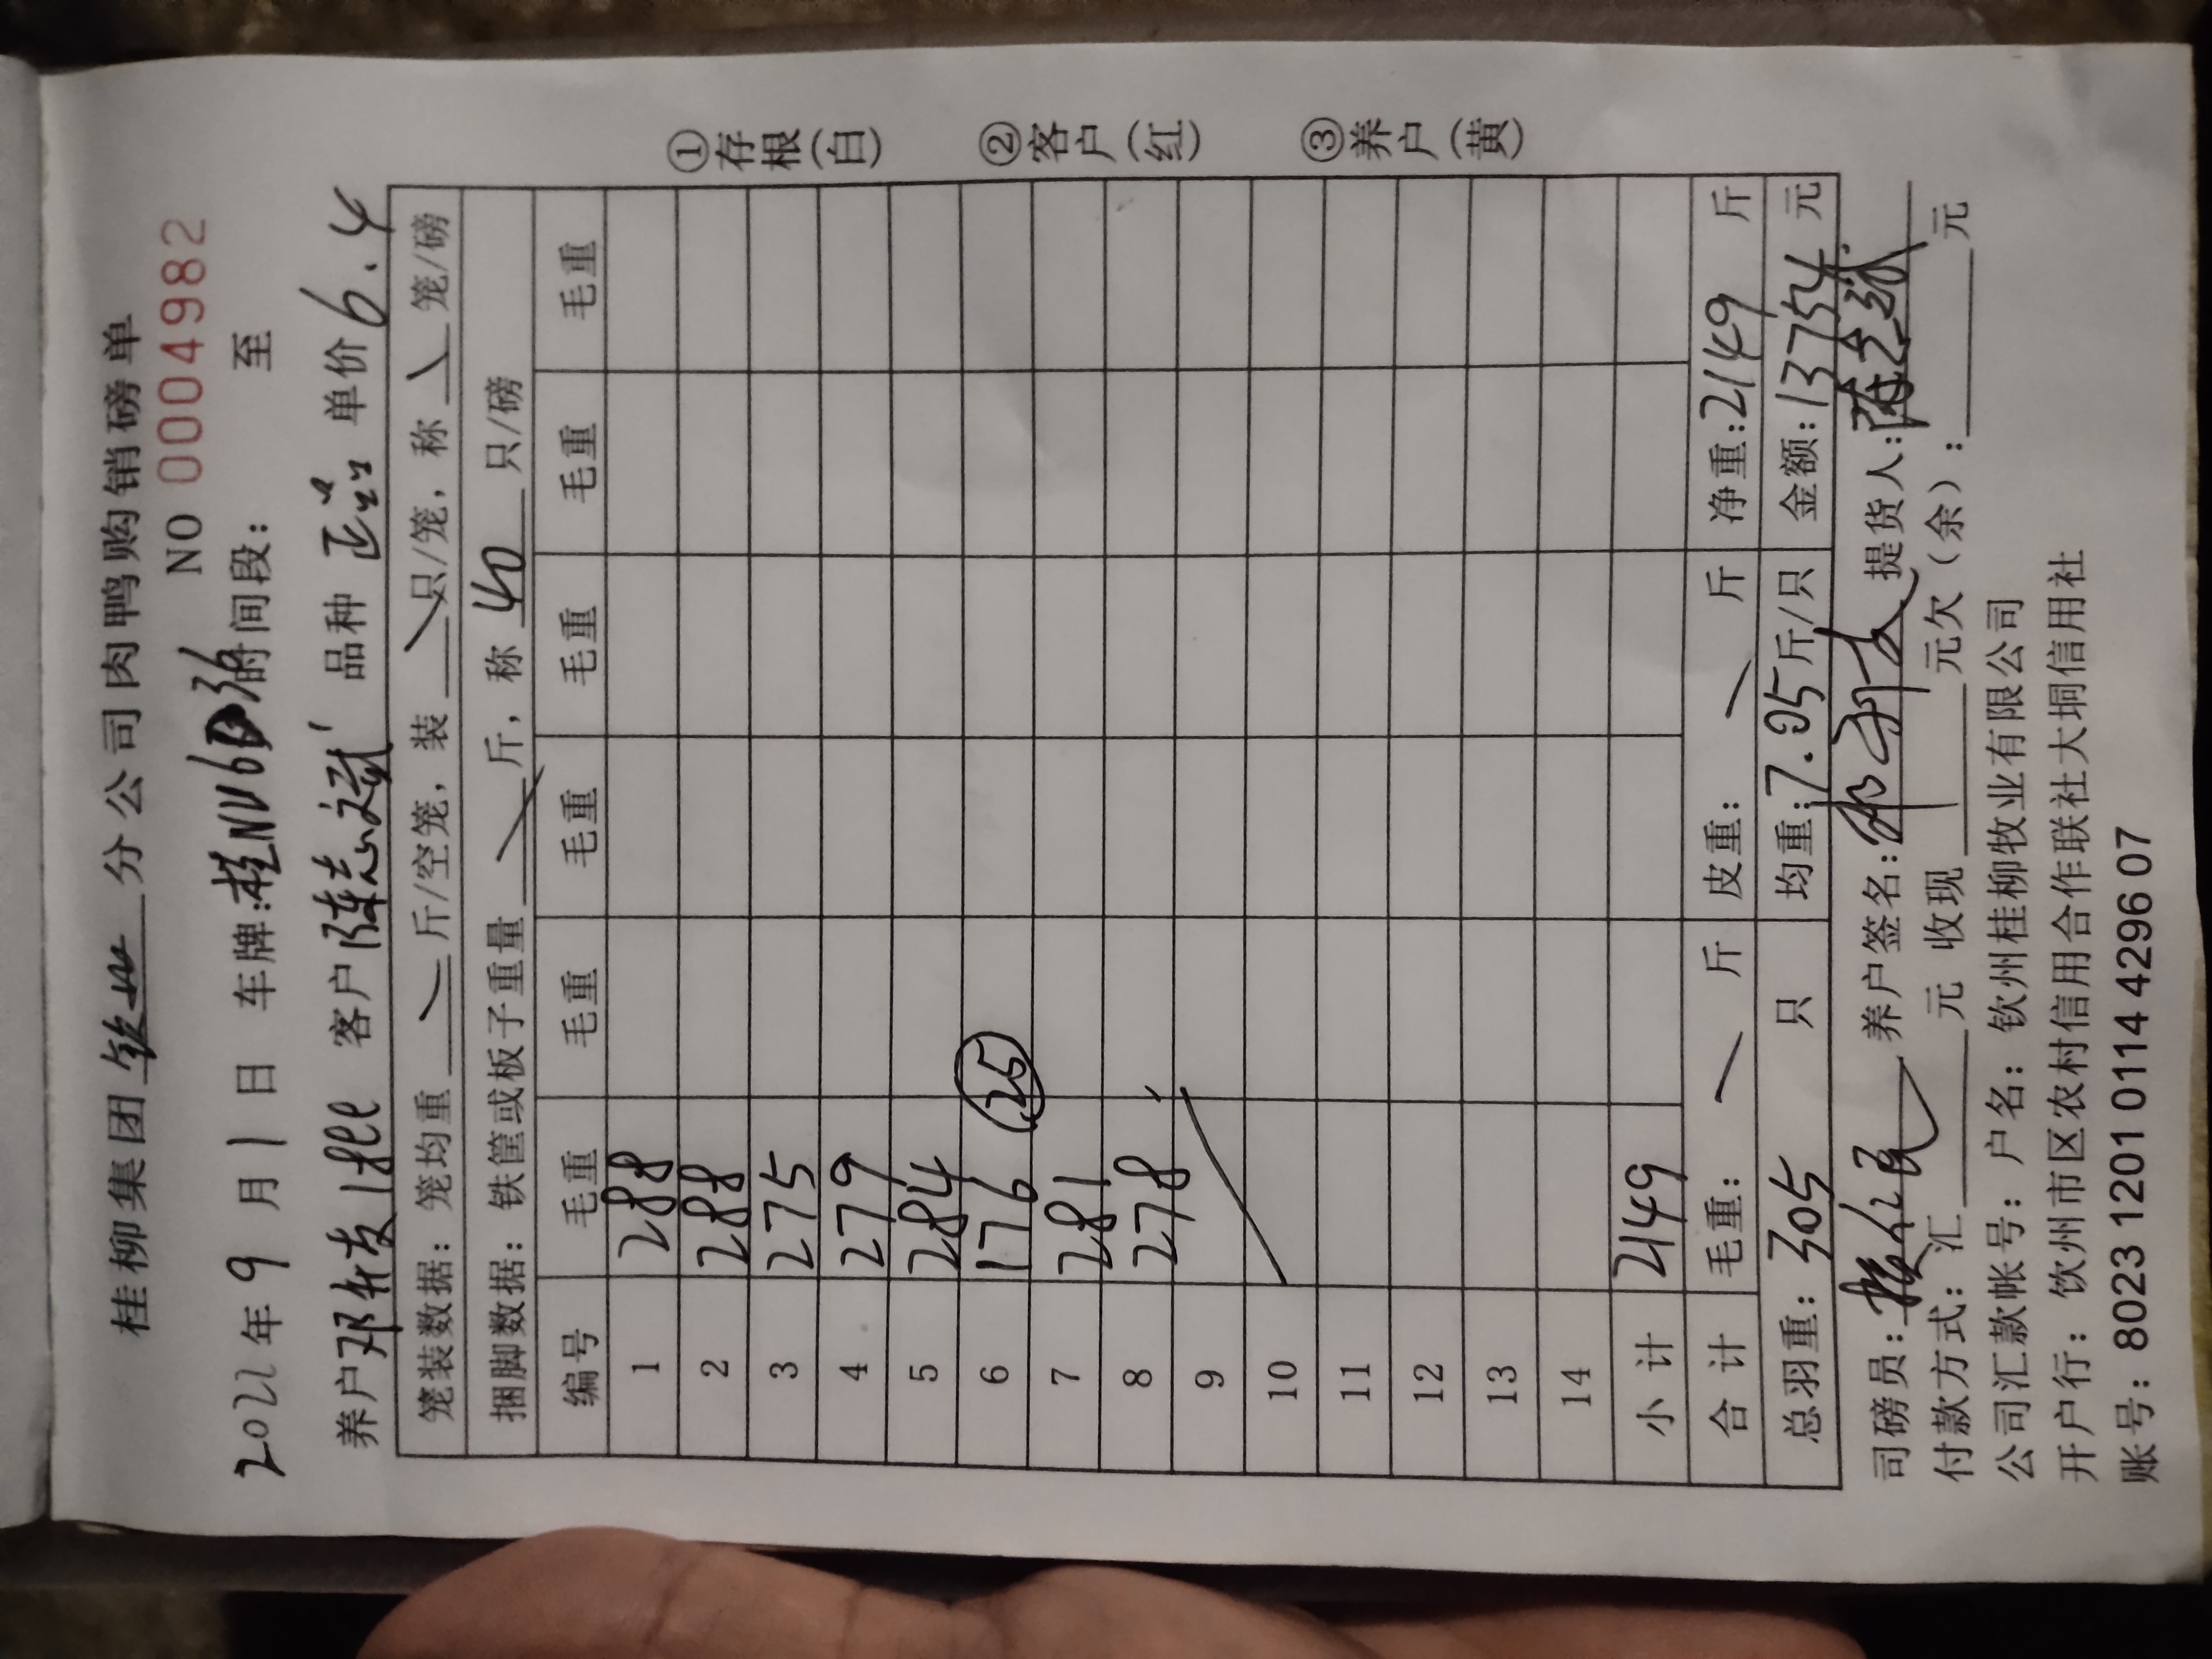 桂柳集团 钦州 分公司肉鸭购销磅单
NO 0004982
2022年9月1日 车牌: 桂NV6 时间段: 至
养户 邓 友 1批 客户 陈志斌 品种 正品 单价 6.4
笼装数据: 笼均重 \ 斤/空笼, 装 \ 只/笼, 称 \ 笼/磅
捆脚数据: 铁筐或板子重量 / 斤, 称 40 只/磅
编号 毛重 毛重 毛重 毛重 毛重 毛重
1 288
2 288
3 275
4 279
5 284
6 176 (25)
7 281
8 278
9
10
11
12
13
14
小计 2149
合计 毛重: / 斤 皮重: / 斤 净重: 2149 斤
总羽重: 305 只 均重: 7.05 斤/只 金额: 13754 元
司磅员: 养户签名: 邓 友 提货人: 陈志斌
付款方式: 汇 元 收现 元欠(余): 元
公司汇款帐号: 户名: 钦州桂柳牧业有限公司
开户行: 钦州市区农村信用合作联社大垌信用社
账号: 8023 1201 0114 4296 07
①存根(白)
②客户(红)
③养户(黄)